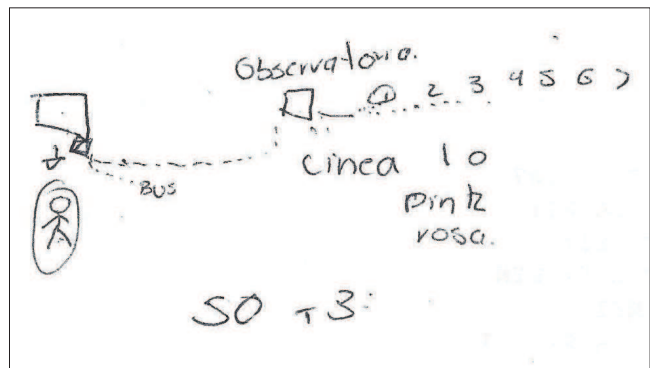 Observatorio.
① 2 3 4 5 6 7
BUS
Linea 1 o
pink
rosa.
50 T3